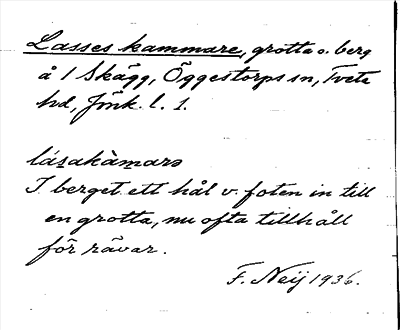 Lasses kammare, grotta o. berg
å 1 Skägg, Öggestorps sn, Tveta
hd, Jönk. l. 1.
lásakàmarə
I berget ett hål v. foten in till
en grotta, nu ofta tillhåll
för rävar.
F. Neij 1936.